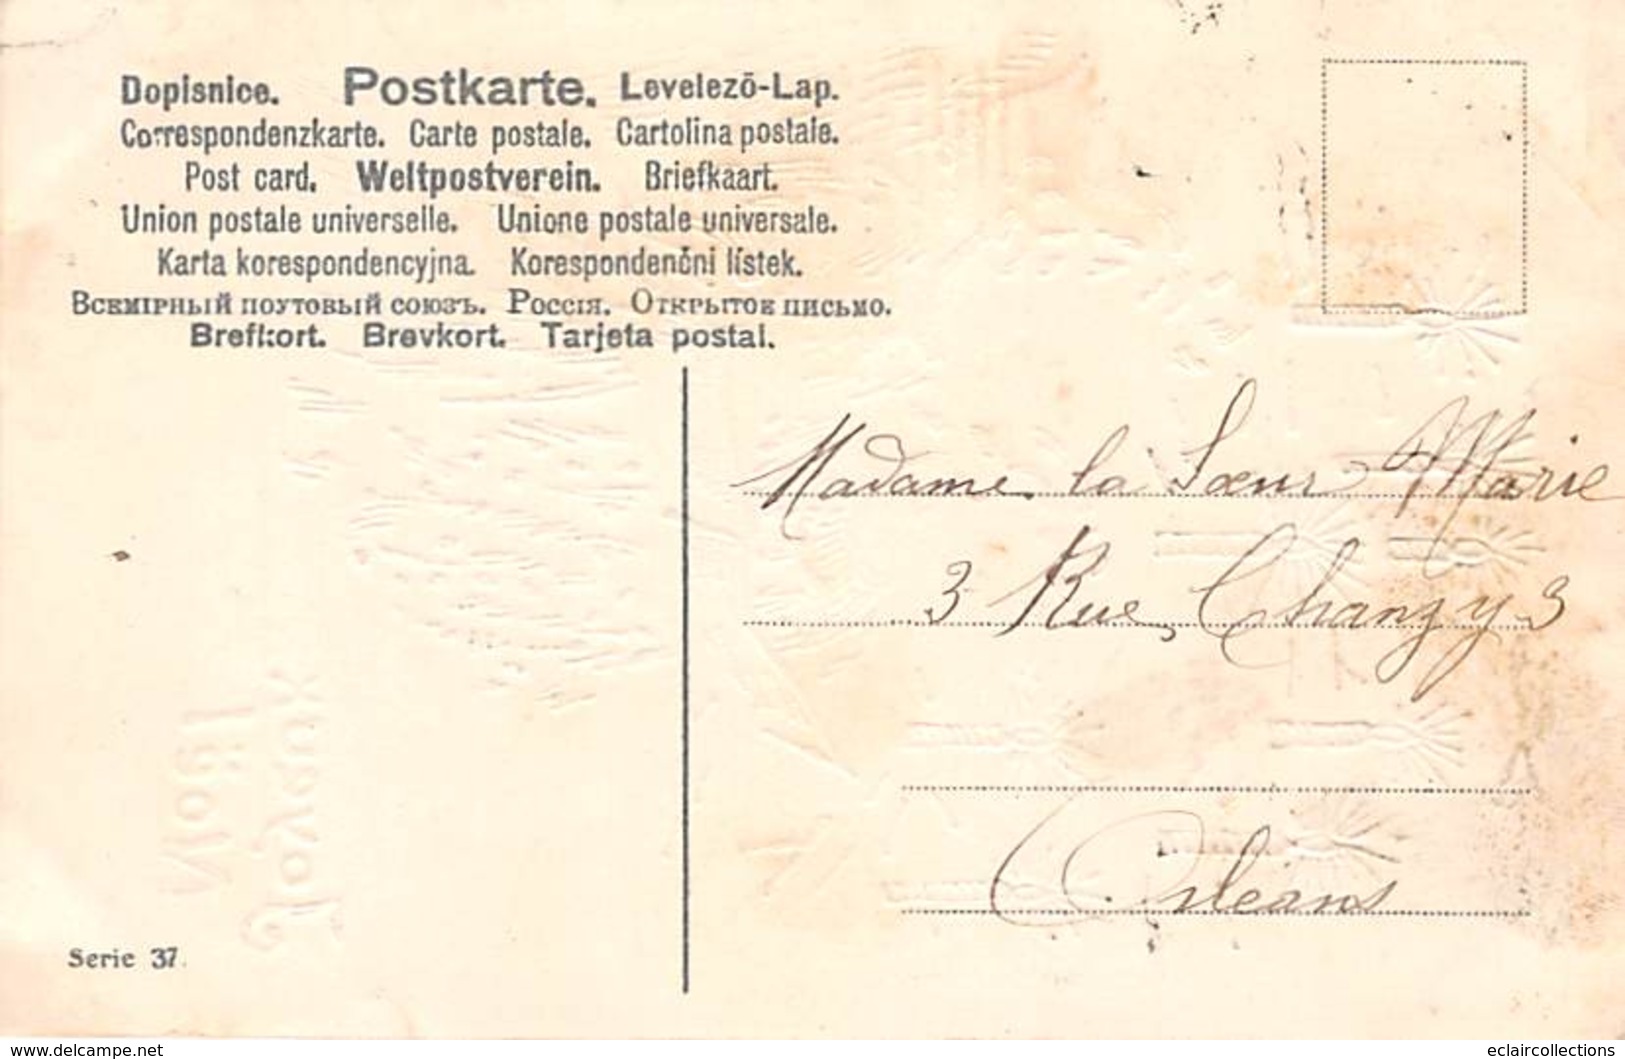 Dopisnice. Postkarte. Levelezō-Lap.
Correspondenzkarte. Carte postale. Cartolina postale.
Post card. Weltpostverein. Briefkaart.
Union postale universelle. Unione postale universale.
Karta korespondencyjna. Korespondenční lístek.
Всемірный поутовый союзъ. Россія. Открытое письмо.
Brefkort. Brevkort. Tarjeta postal.
Madame la Sœur Marie
3 Rue Chanzy 3
Orléans
Noël
Joyeux
Serie 37.
www.delcampe.net
eclaircollections